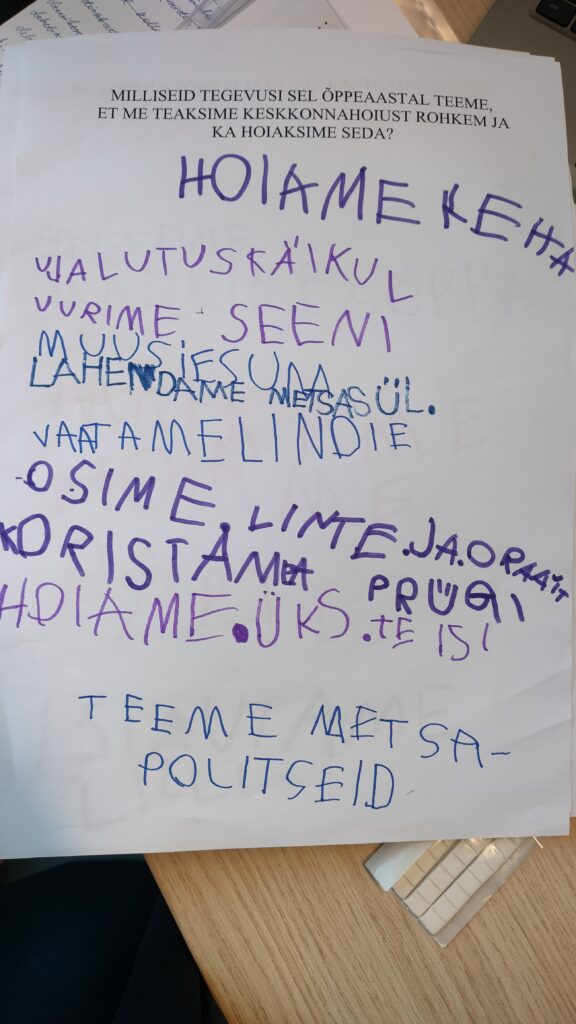 MILLISEID TEGEVUSI SEL ÕPPEAASTAL TEEME,
ET ME TEAKSIME KESKKONNAHOIUST ROHKEM JA
KA HOIAKSIME SEDA?
HOIAME KEHA
JALUTUSKÄIKUL
UURIME SEENI
LAHENDAME METSAS ÜL.
VAATAMELINDIE
OSIME. LINTE.JA.ORAAIT
KORISTAMA PRÜGI
HOIAME.ÜKS.TEISI
TEEME METSA-
POLITSEID